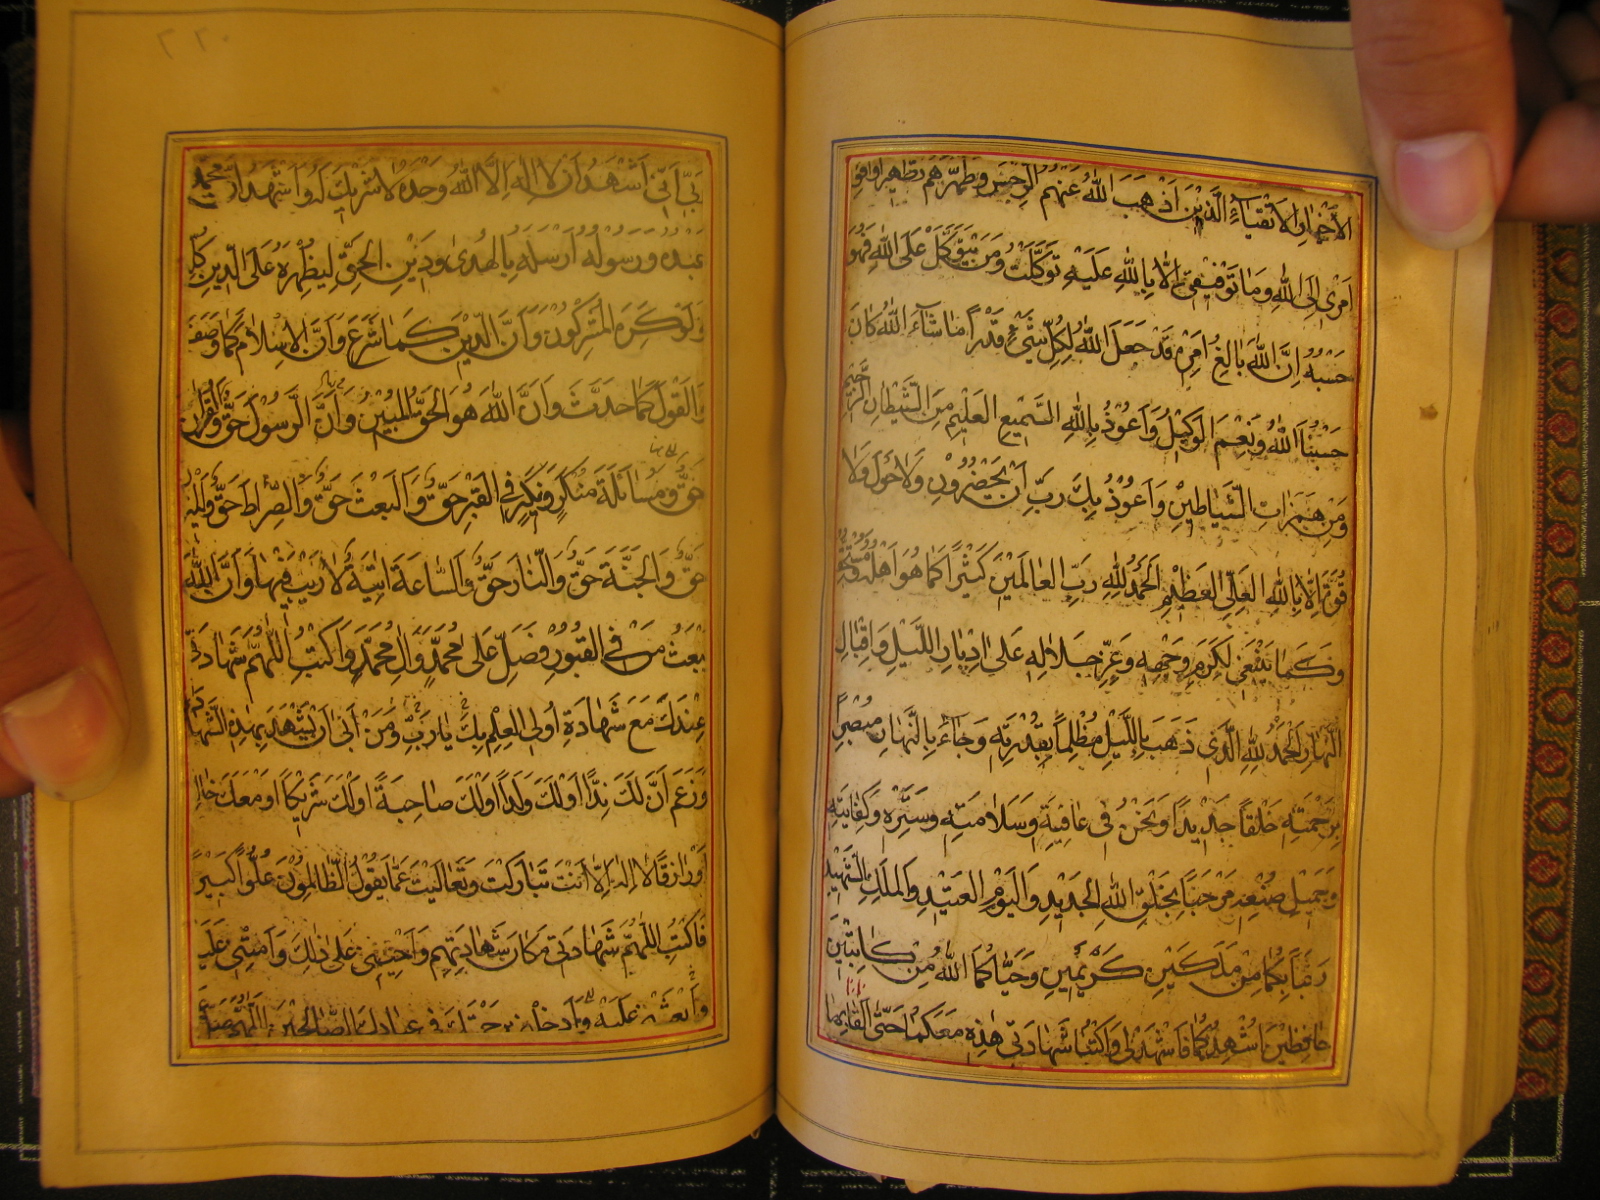 الأخيار الأتقياء الذين اذهب الله عنهم الرجس وطهرهم تطهيرا وافوض
امرى الى الله وما توفيقى الا بالله عليه توكلت ومن يتوكل على الله فهو
حسبه ان الله بالغ امره قد جعل الله لكل شىء قدرا ما شاء الله كان
حسبنا الله ونعم الوكيل واعوذ بالله السميع العليم من الشيطان الرجيم
ومن همزات الشياطين واعوذ بك رب ان يحضرون ولا حول ولا
قوة الا بالله العلى العظيم الحمد لله رب العالمين كثيرا كما هو اهله ومستحقه
وكما ينبغى لكرم وجهه وعز جلاله على ادبار الليل واقبال
النهار الحمد لله الذى ذهب بالليل مظلما بقدرته وجاء بالنهار مبصرا
برحمته خلقا جديدا ونحن فى عافية وسلامته وستره وكفايته
وجميل صنعه مرحبا بخلق الله الجديد واليوم العتيد والملك الشهيد
مرحبا بكما من ملكين كريمين وحياكما الله من كاتبين
حافظين اشهدكما فاشهدا لى واكتبا شهادتى هذه معكما حتى القى بها
ربى انى اشهد ان لا اله الا الله وحده لا شريك له واشهد ان محمدا
عبده ورسوله ارسله بالهدى ودين الحق ليظهره على الدين كله
ولو كره المشركون وان الدين كما شرع وان الاسلام كما وصف
والقول كما حدث وان الله هو الحق المبين وان الرسول حق والقران
حق ومسائلة منكر ونكير فى القبر حق والبعث حق والصراط حق والميزان
حق والجنة حق والنار حق والساعة اتية لا ريب فيها وان الله
يبعث من فى القبور فصل على محمد وال محمد واكتب اللهم شهادتى
عندك مع شهادة اولى العلم بك يا رب ومن ابى ان يشهد بهذه الشهادة
وزعم ان لك ندا او لك ولدا او لك صاحبة او لك شريكا او معك خالقا
ورازقا لا اله الا انت تباركت وتعاليت عما يقول الظالمون علوا كبيرا
فاكتب اللهم شهادتى مكان شهادتهم واحينى على ذلك وامتنى عليه
وابعثنى عليه وادخلنى برحمتك فى عبادك الصالحين اللهم صل